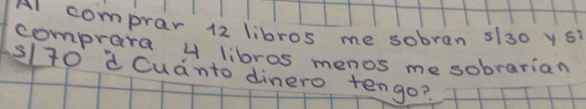 Al comprar 12 libros me sobran s/30 y si
comprara 4 libros menos me sobrarian
s/70 ¿Cuánto dinero tengo?